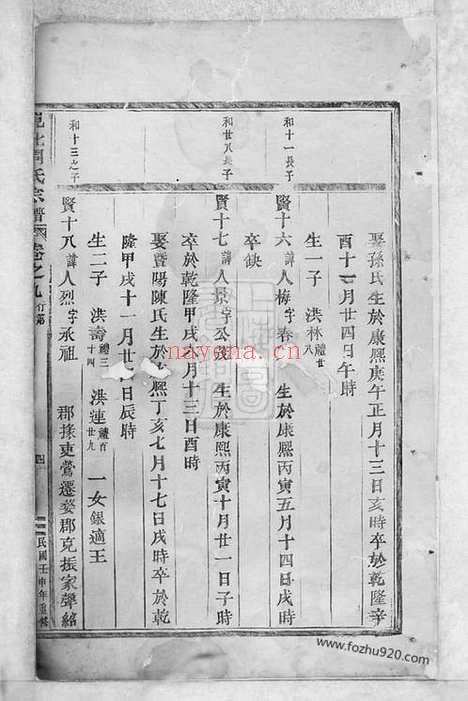 娶孫氏生於康熙庚午正月十三日亥時卒於乾隆辛
酉十一月廿四日午時
生一子 洪林禮廿八
和十一長子
賢十六諱人梅字春 生於康熙丙寅五月十四日戌時
卒缺
和廿八長子
賢十七諱人景字公茂 生於康熙丙寅十月廿一日子時
卒於乾隆甲戌月十三日酉時
娶暨陽陳氏生於康熙丁亥七月十七日戌時卒於乾
隆甲戌十一月廿日辰時
生二子 洪壽禮三十四 洪連禮百廿九 一女銀適王
和十三之子
賢十八諱人烈字承祖 郡掾吏鶯遷婺郡克振家聲紹
周氏宗譜 卷之九 行第
四
民國壬申年重修
nayona.cn
www.fozhu920.com